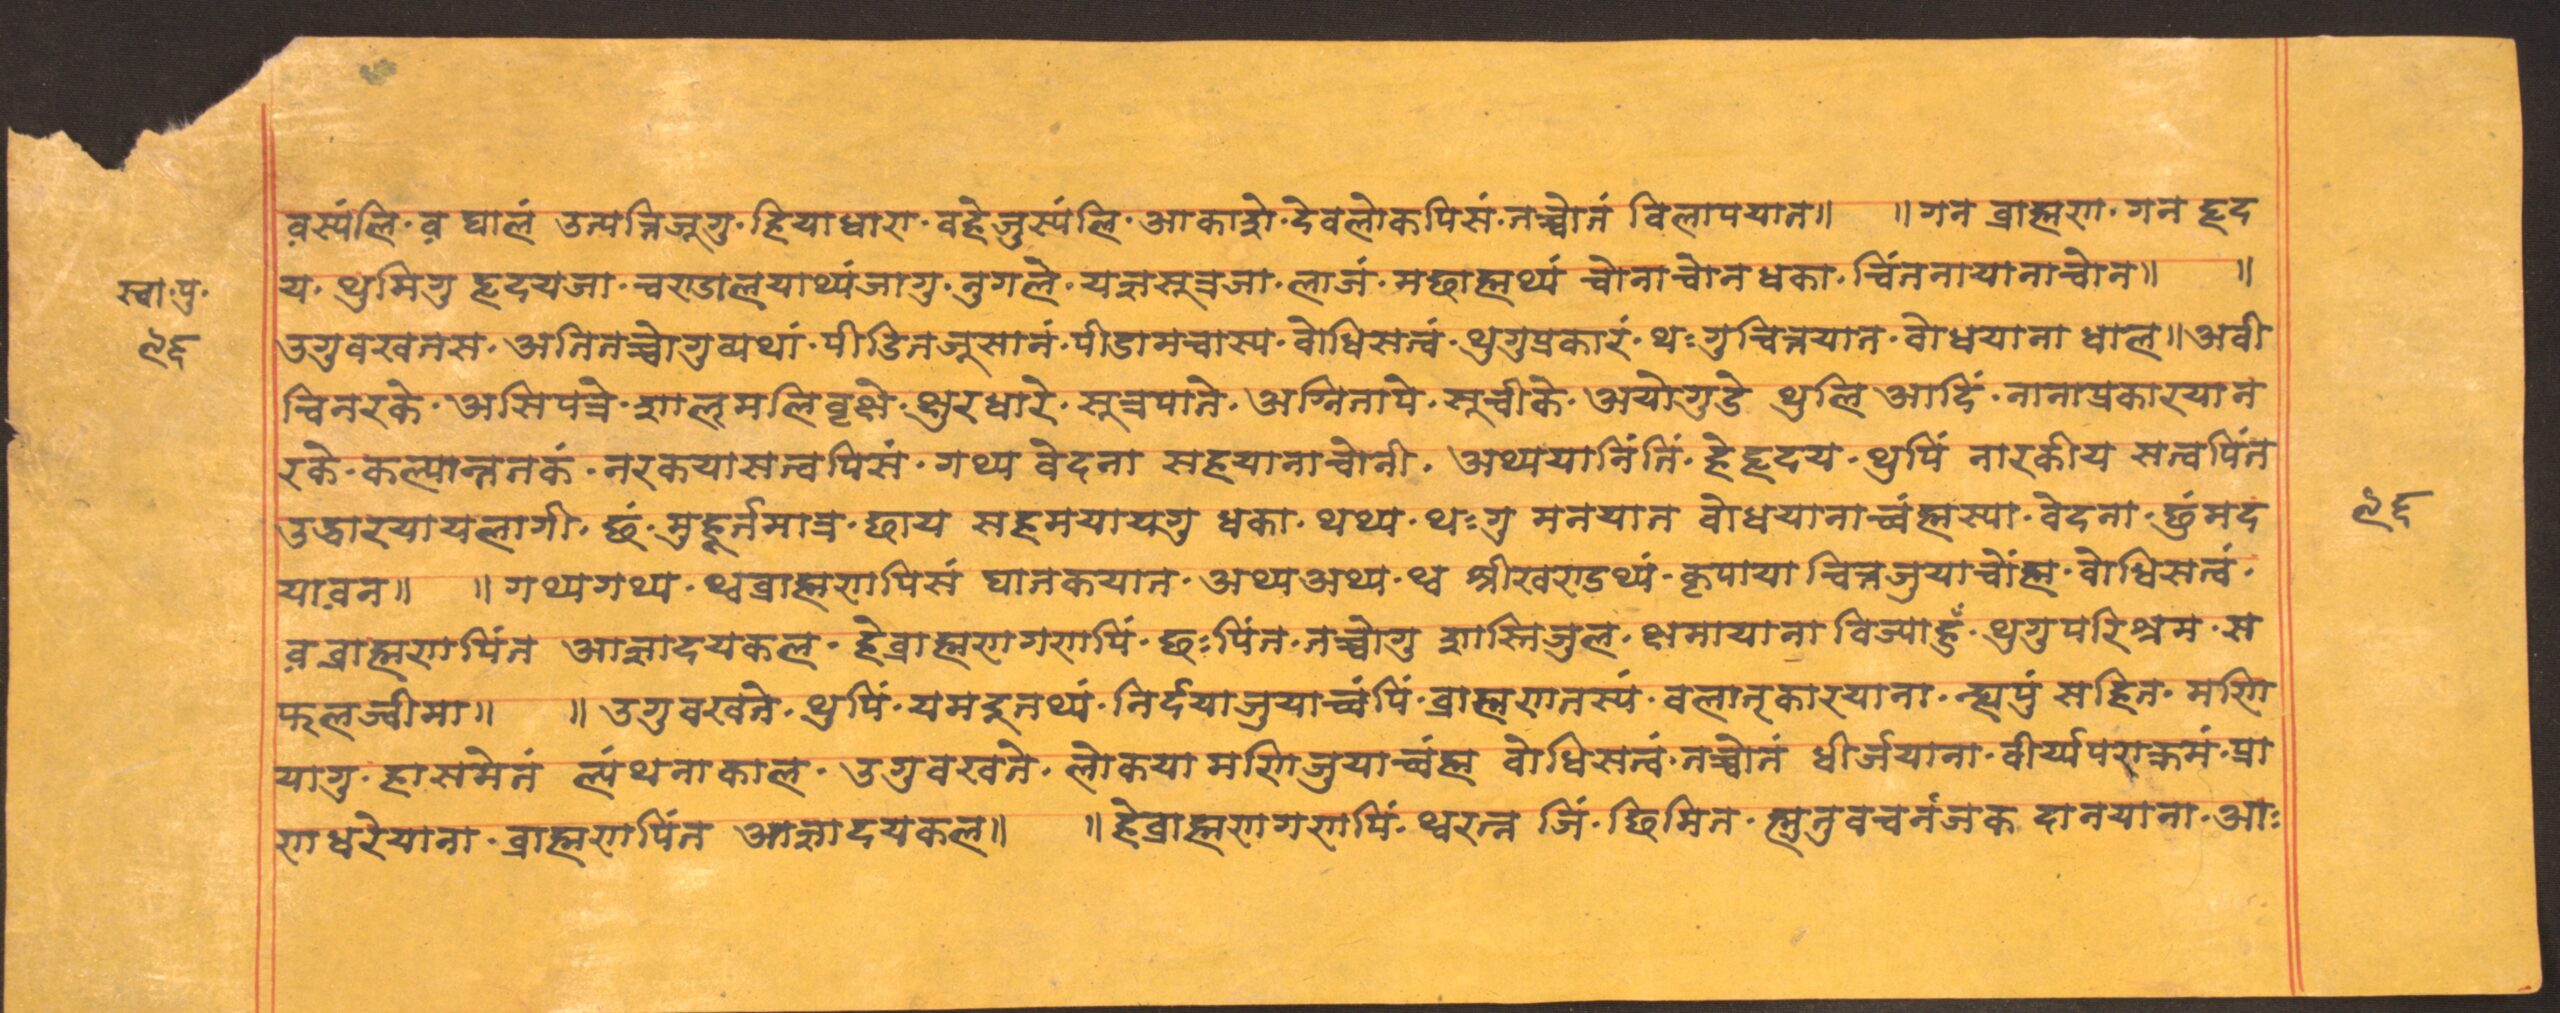 व़स्यंलि· व़ घालं उत्पत्तिजूगु· हियाधारा· वहेजुस्यंलि· आकाशे· देवलोकपिसं· तच्वोतं विलापयात॥ ॥गन ब्राह्मण· गन हृद
स्वा·पु·
य· थुमिगु हृदयजा· चण्डालयाथ्यंजागु· नुगले· यज्ञसूत्रजा· लाजं· मछाह्मथ्यं च्वोनाच्वोन धका· चिंतनायानाच्वोन॥ ॥
९६
उगुवखतस· अतितच्वोगुव्यथां· पीडितजूसानं· पीडामचास्य· वोधिसत्वं· थुगुप्रकारं· थःगुचित्तयात· वोधयाना धाल॥अवी
चिनरके· असिपत्रे· शाल्मलिवृक्षे· क्षुरधारे· सूत्रपाते· अग्नितापे· सूचीके· अयोगुडे थुलि आदिं· नानाप्रकारयान
रके· कल्पान्ततकं· नरकयासत्वपिसं· गथ्य वेदना सहयानाच्वोनी· अथ्ययानिंतिं· हेहृदय· थुपिं नारकीय सत्वपिंत
उद्धारयायलागी· छं· मुहूर्तमात्र· छाय सहमयायगु धका· थथ्य· थःगु मनयात वोधयानाच्वंह्मस्या· वेदना· छुंमद
९६
याव़न॥ ॥गथ्यगथ्य· थ्वब्राह्मणपिसं घातकयात· अथ्यअथ्य· थ्व श्रीखण्डथ्यं· कृपाया चित्तजुयाच्वोंह्म· वोधिसत्वं·
व़ब्राह्मणपिंत आज्ञादयकल· हेब्राह्मणगणपिं· छःपिंत· तच्वोगु शास्तिजुल· क्षमायाना विज्याहुँ· थुगुपरिश्रम· स
फलज्वीमा॥ ॥उगुवखते· थुपिं· यमदूतथ्यं· निर्दयाजुयाच्वंपिं· ब्राह्मणतस्यं· वलात्कारयाना· न्ह्यपुं सहित· मणि
यागु· हासमेतं ल्यंथनाकाल· उगुवखते· लोकया मणिजुयाच्वंह्म वोधिसत्वं· तच्वोतं धीर्जयाना· वीर्य्यपराक्रमं· प्रा
णधरेयाना· ब्राह्मणपिंत आज्ञादयकल॥ ॥हेब्राह्मणगणपिं· थ्वरत्न जिं· छिमित· ह्मुतुवचनंजक दानयाना· आः